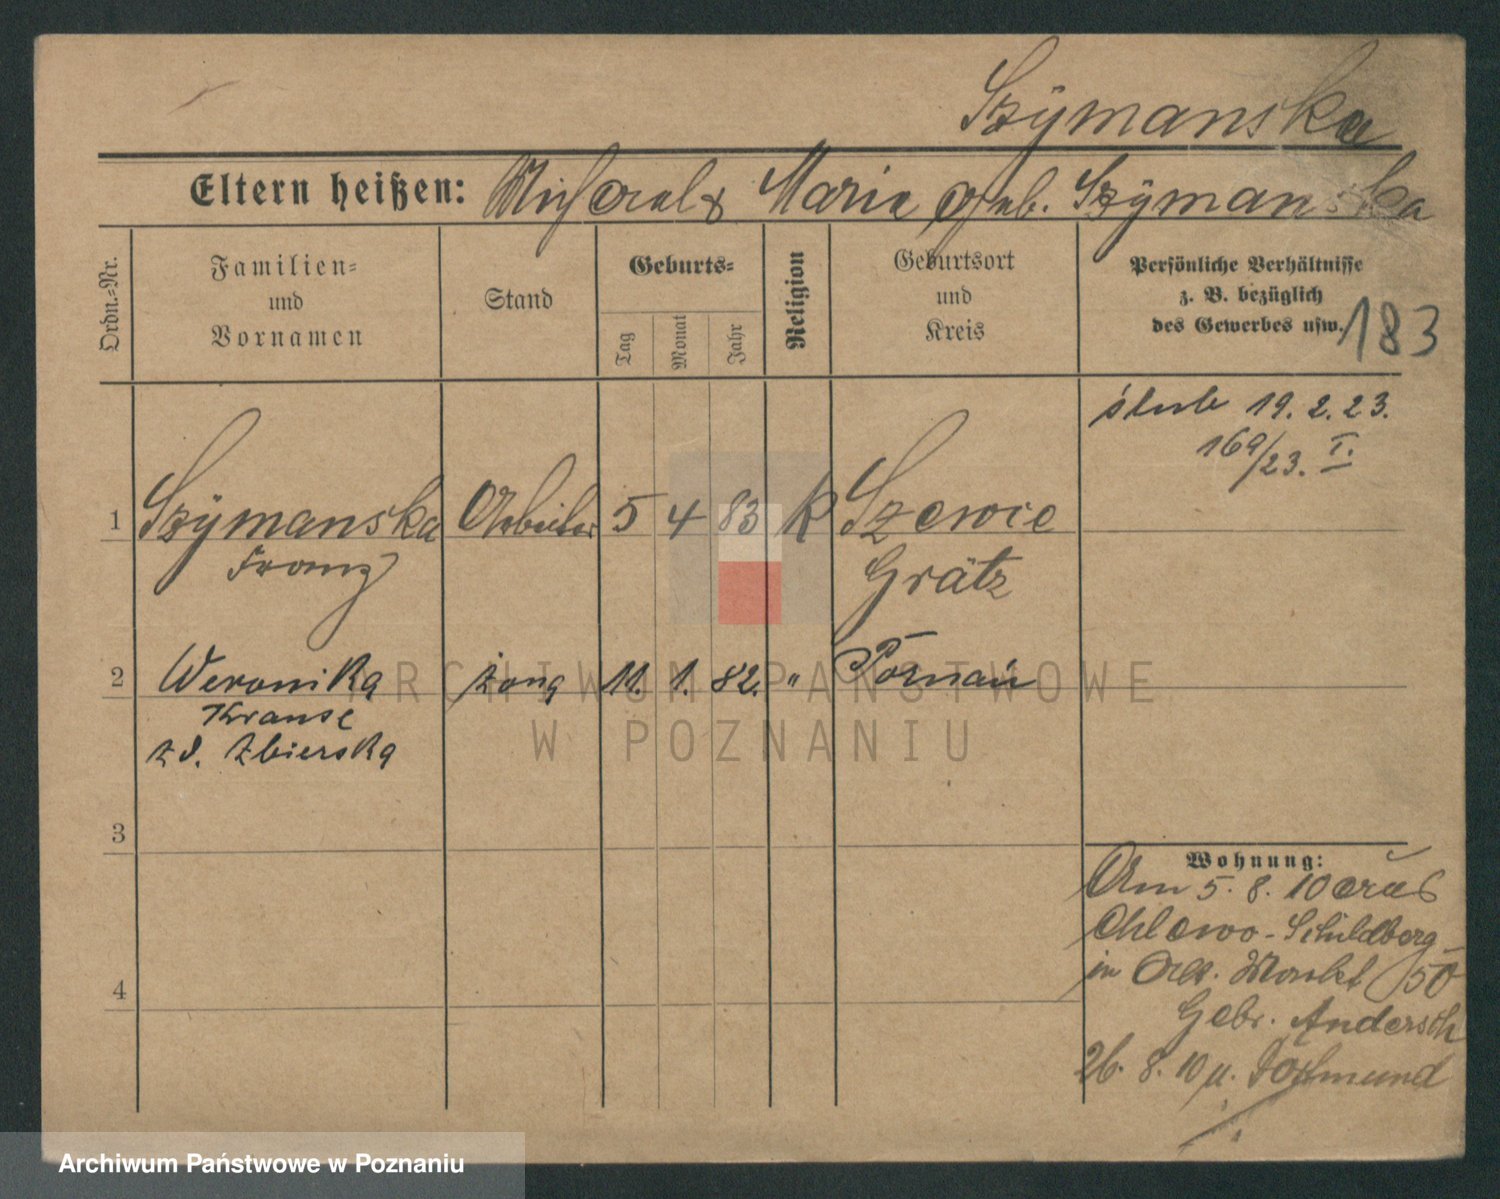 Szÿmanska
Eltern heißen: Michael & Marie geb. Szÿmanska
Ordn.=Nr.
Familien=
und
Vornamen
Stand
Geburts=
Tag
Monat
Jahr
Religion
Geburtsort
und
Kreis
Persönliche Verhältnisse
z. B. bezüglich
des Gewerbes usw.
183
ślub 19. 2. 23.
169/23. I.
1 Szÿmanska Arbeiter 5 4 83 K Szewce
Franz Grätz
2 Weronika żona 11. 1. 82. " Poznań
Krause
zd. Zbierska
3
4
Wohnung:
Am 5. 8. 10 aus
Chlewo - Schildberg -
in Alt. Markt 50
Gebr. Andersch
26. 8. 10 n. Dortmund
ARCHIWUM PAŃSTWOWE
W POZNANIU
Archiwum Państwowe w Poznaniu